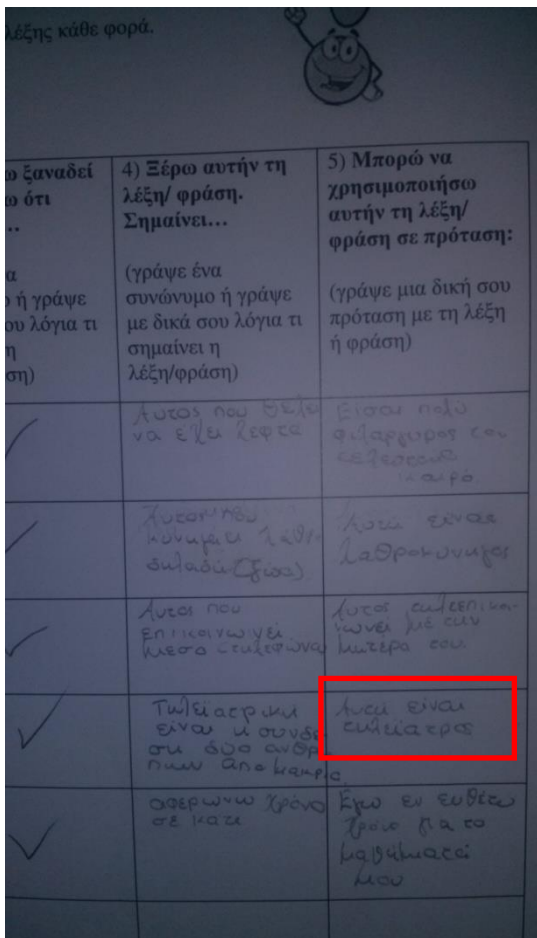 λέξης κάθε φορά.
ω ξαναδεί
ω ότι
..
α
ή γράψε
ου λόγια τι
η
ση)
4) Ξέρω αυτήν τη
λέξη/ φράση.
Σημαίνει…
(γράψε ένα
συνώνυμο ή γράψε
με δικά σου λόγια τι
σημαίνει η
λέξη/φράση)
5) Μπορώ να
χρησιμοποιήσω
αυτήν τη λέξη/
φράση σε πρόταση:
(γράψε μια δική σου
πρόταση με τη λέξη
ή φράση)
Αυτος που θελει
να εχει λεφτα
Είσαι πολύ
φιλάργυρος τον
τελευταιο
καιρό
Αυτος που
κυνηγαει λαθρ
δηλαδή (ζώα)
Αυτή είναι
λαθροκυνηγος
Αυτος που
επικοινωνει
μεσα τηλεφώνου
Αυτος τηλεεπικοι-
νωνει με την
μητέρα του.
Τηλεϊατρικη
είναι η συνδε
ση δύο ανθρ
πων απο μακρια.
Αυτή είναι
τηλεϊατρος
αφερωνω χρόνο
σε κατι
Εγω εν ευθέτω
χρόνο για το
μαθήματα
μου